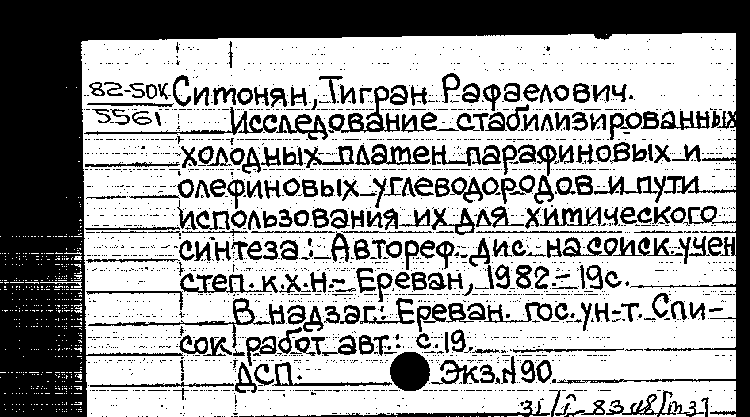 82-50К Ситонян, Тигран Рафаелович.
5561 Исследование стабилизированных
холодных платен парафиновых и
олефиновых углеводородов и пути
использования их для химического
синтеза: Автореф. дис. на соиск. учен
степ. к.х.н.- Ереван, 1982.-19с.
В надзаг.: Ереван. гос. ун-т. Спи-
сок работ авт.: с.19.
ДСП. Экз.№90.